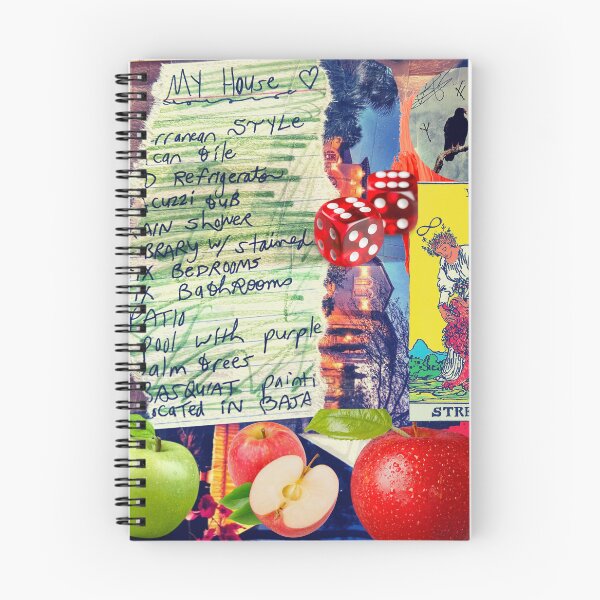 My House ♡
rranean STYLE
can tile
D Refrigerator
cuzzi tub
AIN Shower
BRARY w/ stained
X BEDROOMS
X BathRooms
PATIO
pool with purple
alm trees
BASQUIAT painti
ocated IN BAJA
STRE